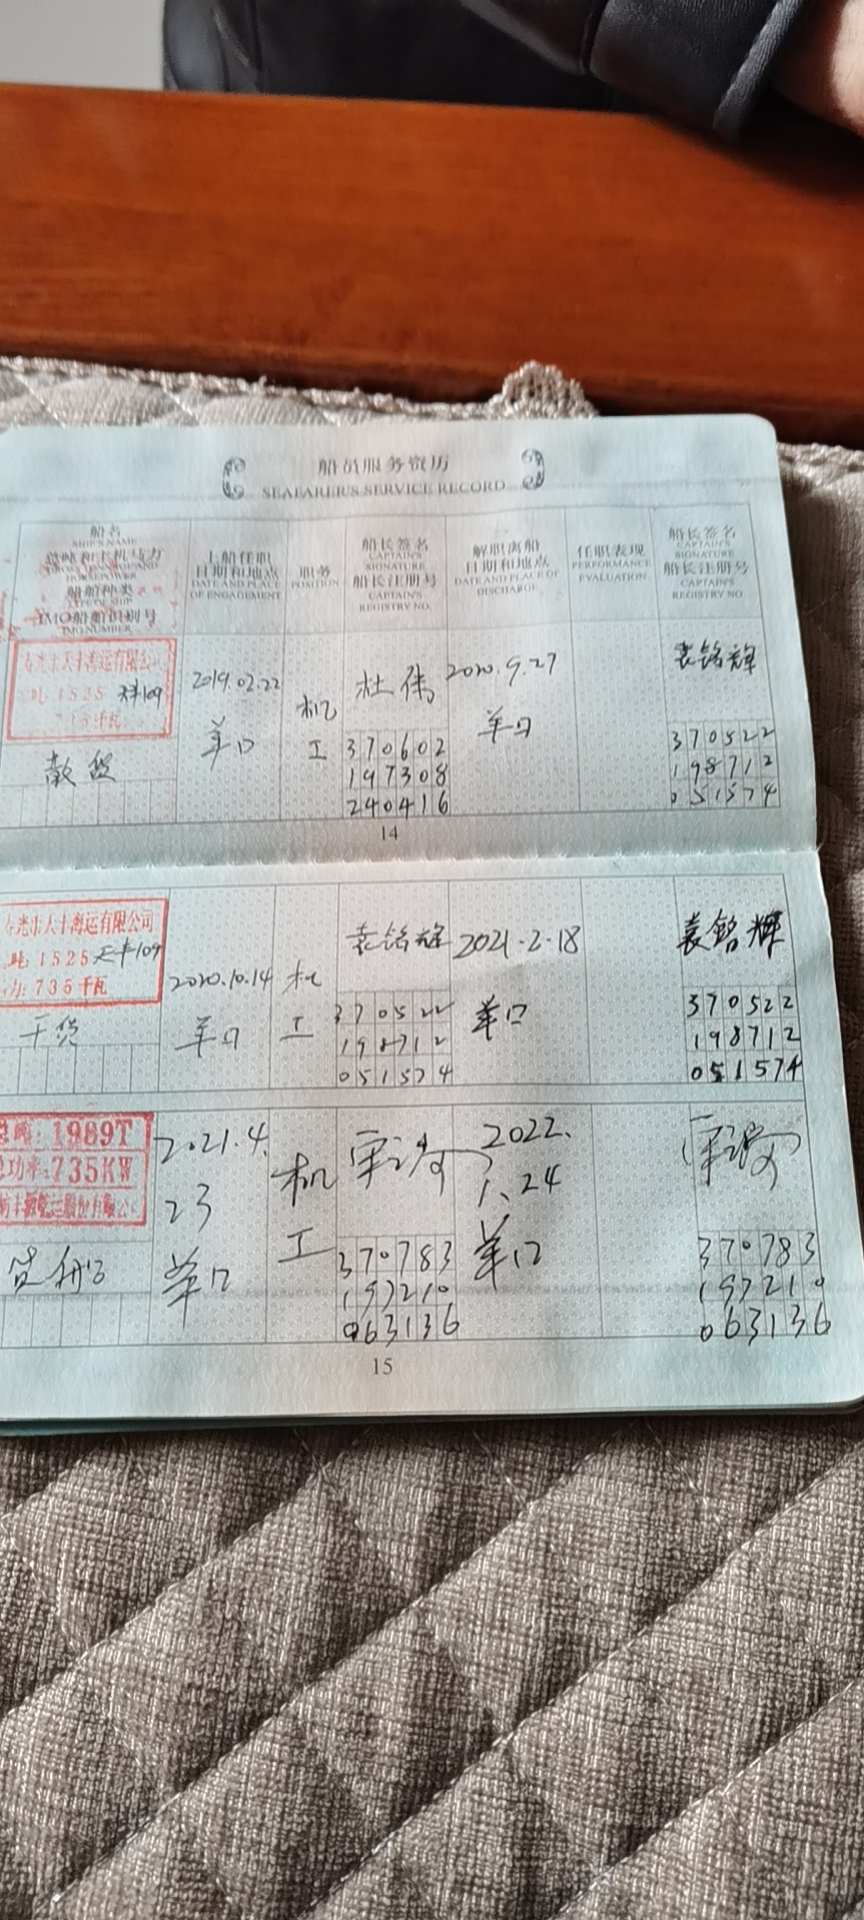 船员服务资历
SEAFARER'S SERVICE RECORD
船名
SHIP'S NAME
总吨和主机马力
HORSEPOWER
船舶种类
TYPE OF SHIP
IMO船舶识别号
IMO NUMBER
上船任职
日期和地点
DATE AND PLACE
OF ENGAGEMENT
职务
POSITION
船长签名
CAPTAIN'S
SIGNATURE
船长注册号
CAPTAIN'S
REGISTRY NO.
解职离船
日期和地点
DATE AND PLACE OF
DISCHARGE
任职表现
PERFORMANCE
EVALUATION
船长签名
CAPTAIN'S
SIGNATURE
船长注册号
CAPTAIN'S
REGISTRY NO
1525
散货
2019.02.22
羊口
机
工
杜伟
370602
197308
240416
2020.9.27
羊口
袁铭辉
370522
198712
051574
14
光市天丰海运有限公司
吨:1525 天丰109
力:735千瓦
干货
2020.10.14
羊口
机
工
袁铭辉
370522
198712
051574
2021.2.18
羊口
袁铭辉
370522
198712
051574
总吨:1989T
功率:735KW
货船
2021.4.
23
羊口
机
工
370783
197210
063136
2022.
1.24
羊口
370783
197210
063136
15